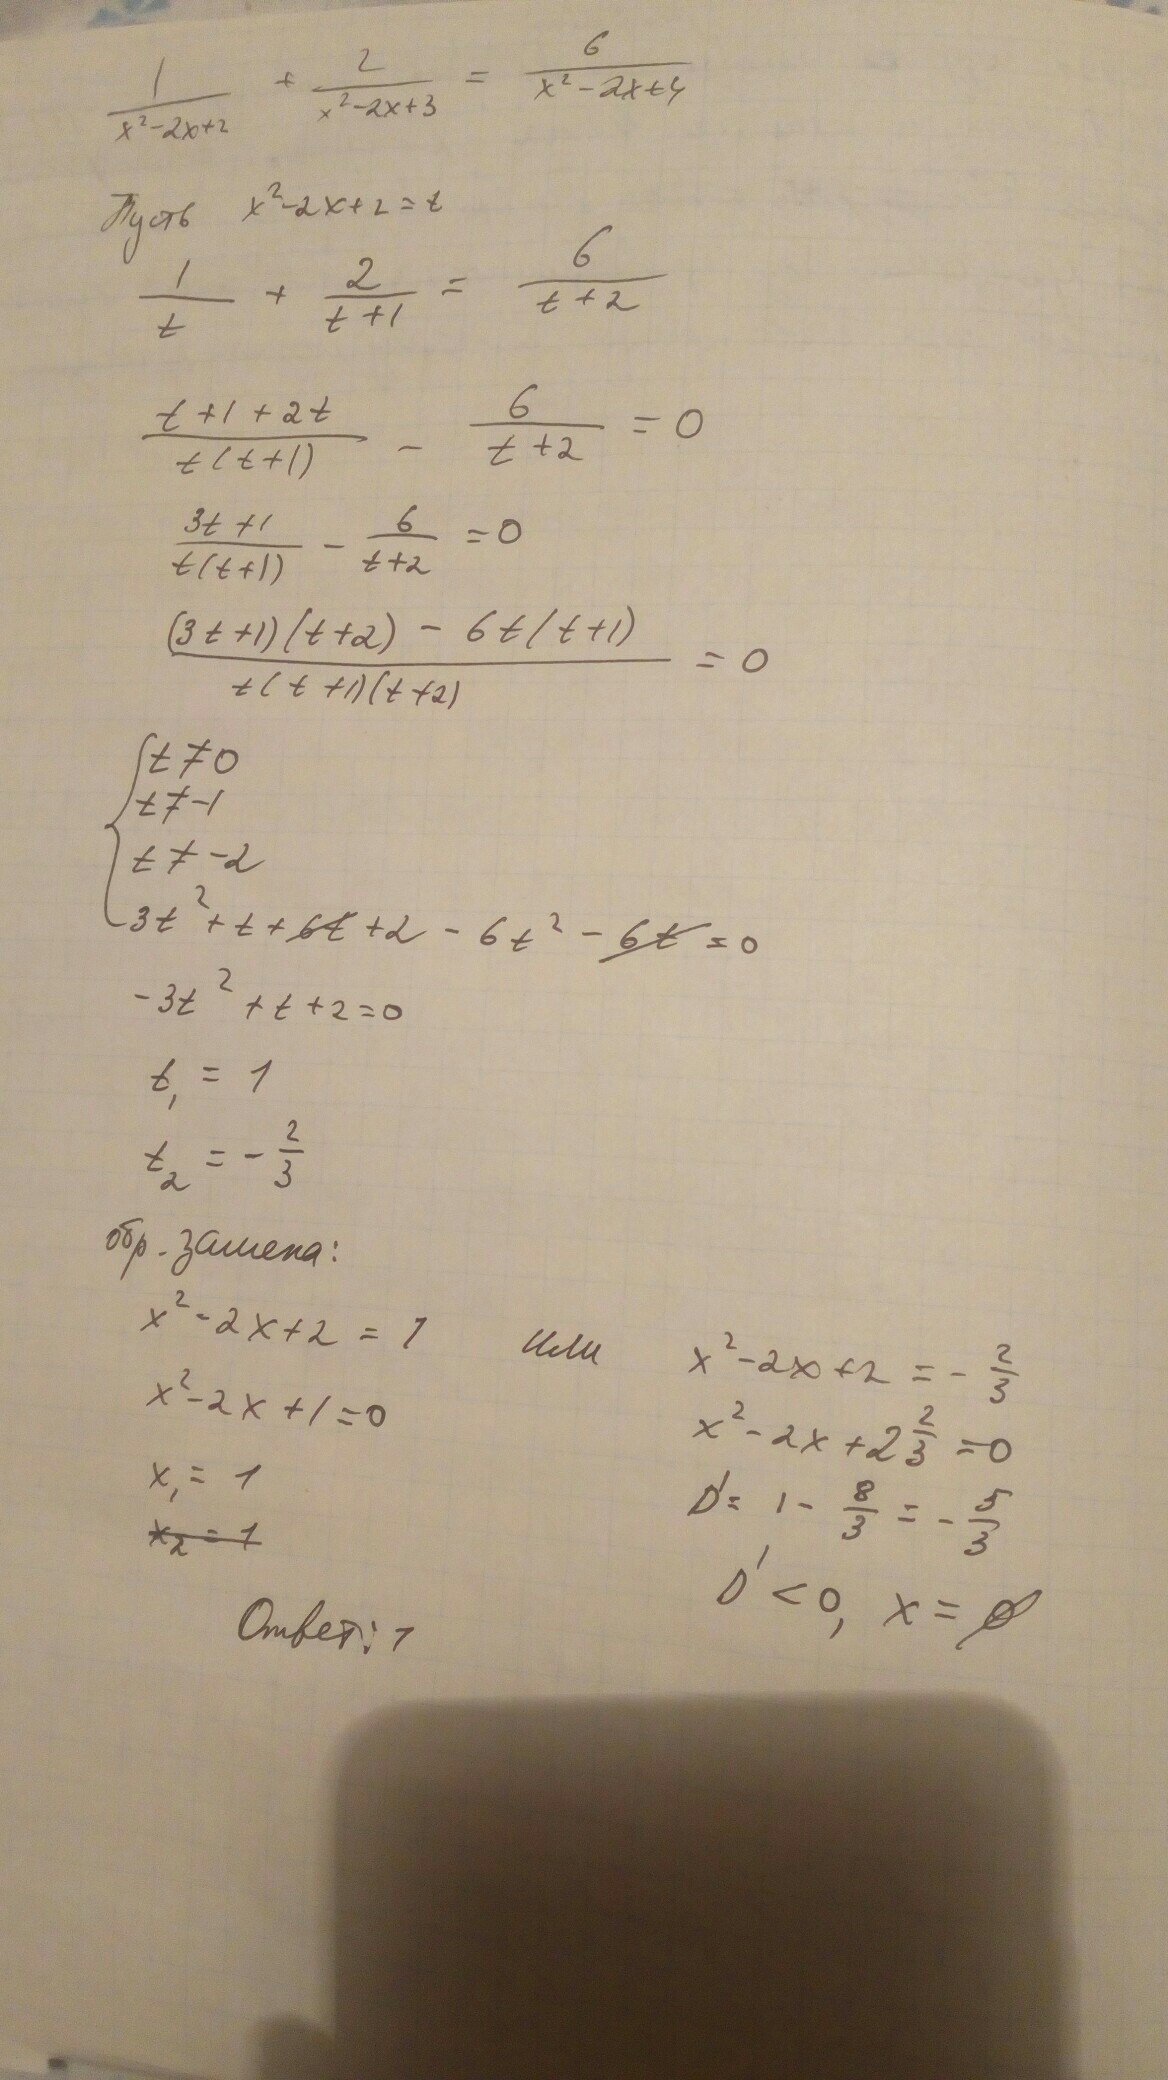 1/(x²-2x+2) + 2/(x²-2x+3) = 6/(x²-2x+4)
Пусть x²-2x+2=t
1/t + 2/(t+1) = 6/(t+2)
(t+1+2t)/(t(t+1)) - 6/(t+2) = 0
(3t+1)/(t(t+1)) - 6/(t+2) = 0
((3t+1)(t+2) - 6t(t+1))/(t(t+1)(t+2)) = 0
t≠0
t≠-1
t≠-2
3t²+t+6t+2-6t²-6t=0
-3t²+t+2=0
t₁ = 1
t₂ = -2/3
обр. замена:
x²-2x+2=1 или x²-2x+2=-2/3
x²-2x+1=0 x²-2x+2 2/3=0
x₁=1 D'= 1-8/3=-5/3
x₂=1
D'<0, x=∅
Ответ: 1